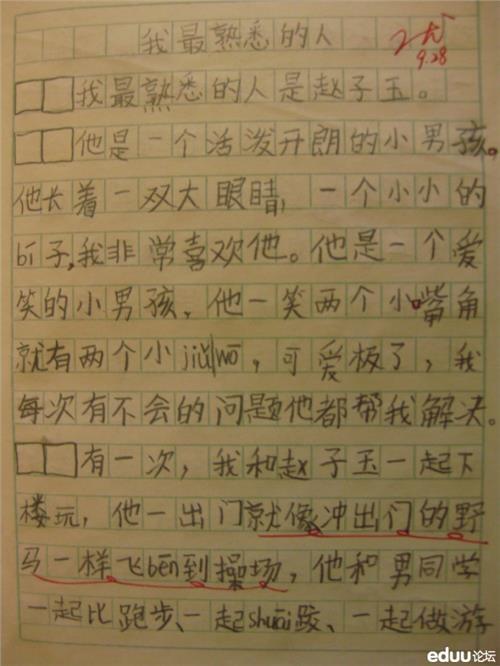 我最熟悉的人
优
9.28
我最熟悉的人是赵子玉。
他是一个活泼开朗的小男孩。
他长着一双大眼睛，一个小小的
bí子，我非常喜欢他。他是一个爱
笑的小男孩，他一笑两个小嘴角
就有两个小jiǔwō，可爱极了，我
每次有不会的问题他都帮我解决。
有一次，我和赵子玉一起下
楼玩，他一出门就像冲出门的野
马一样飞bēn到操场，他和男同学
一起比跑步、一起shuāi跤、一起做游
eduu论坛